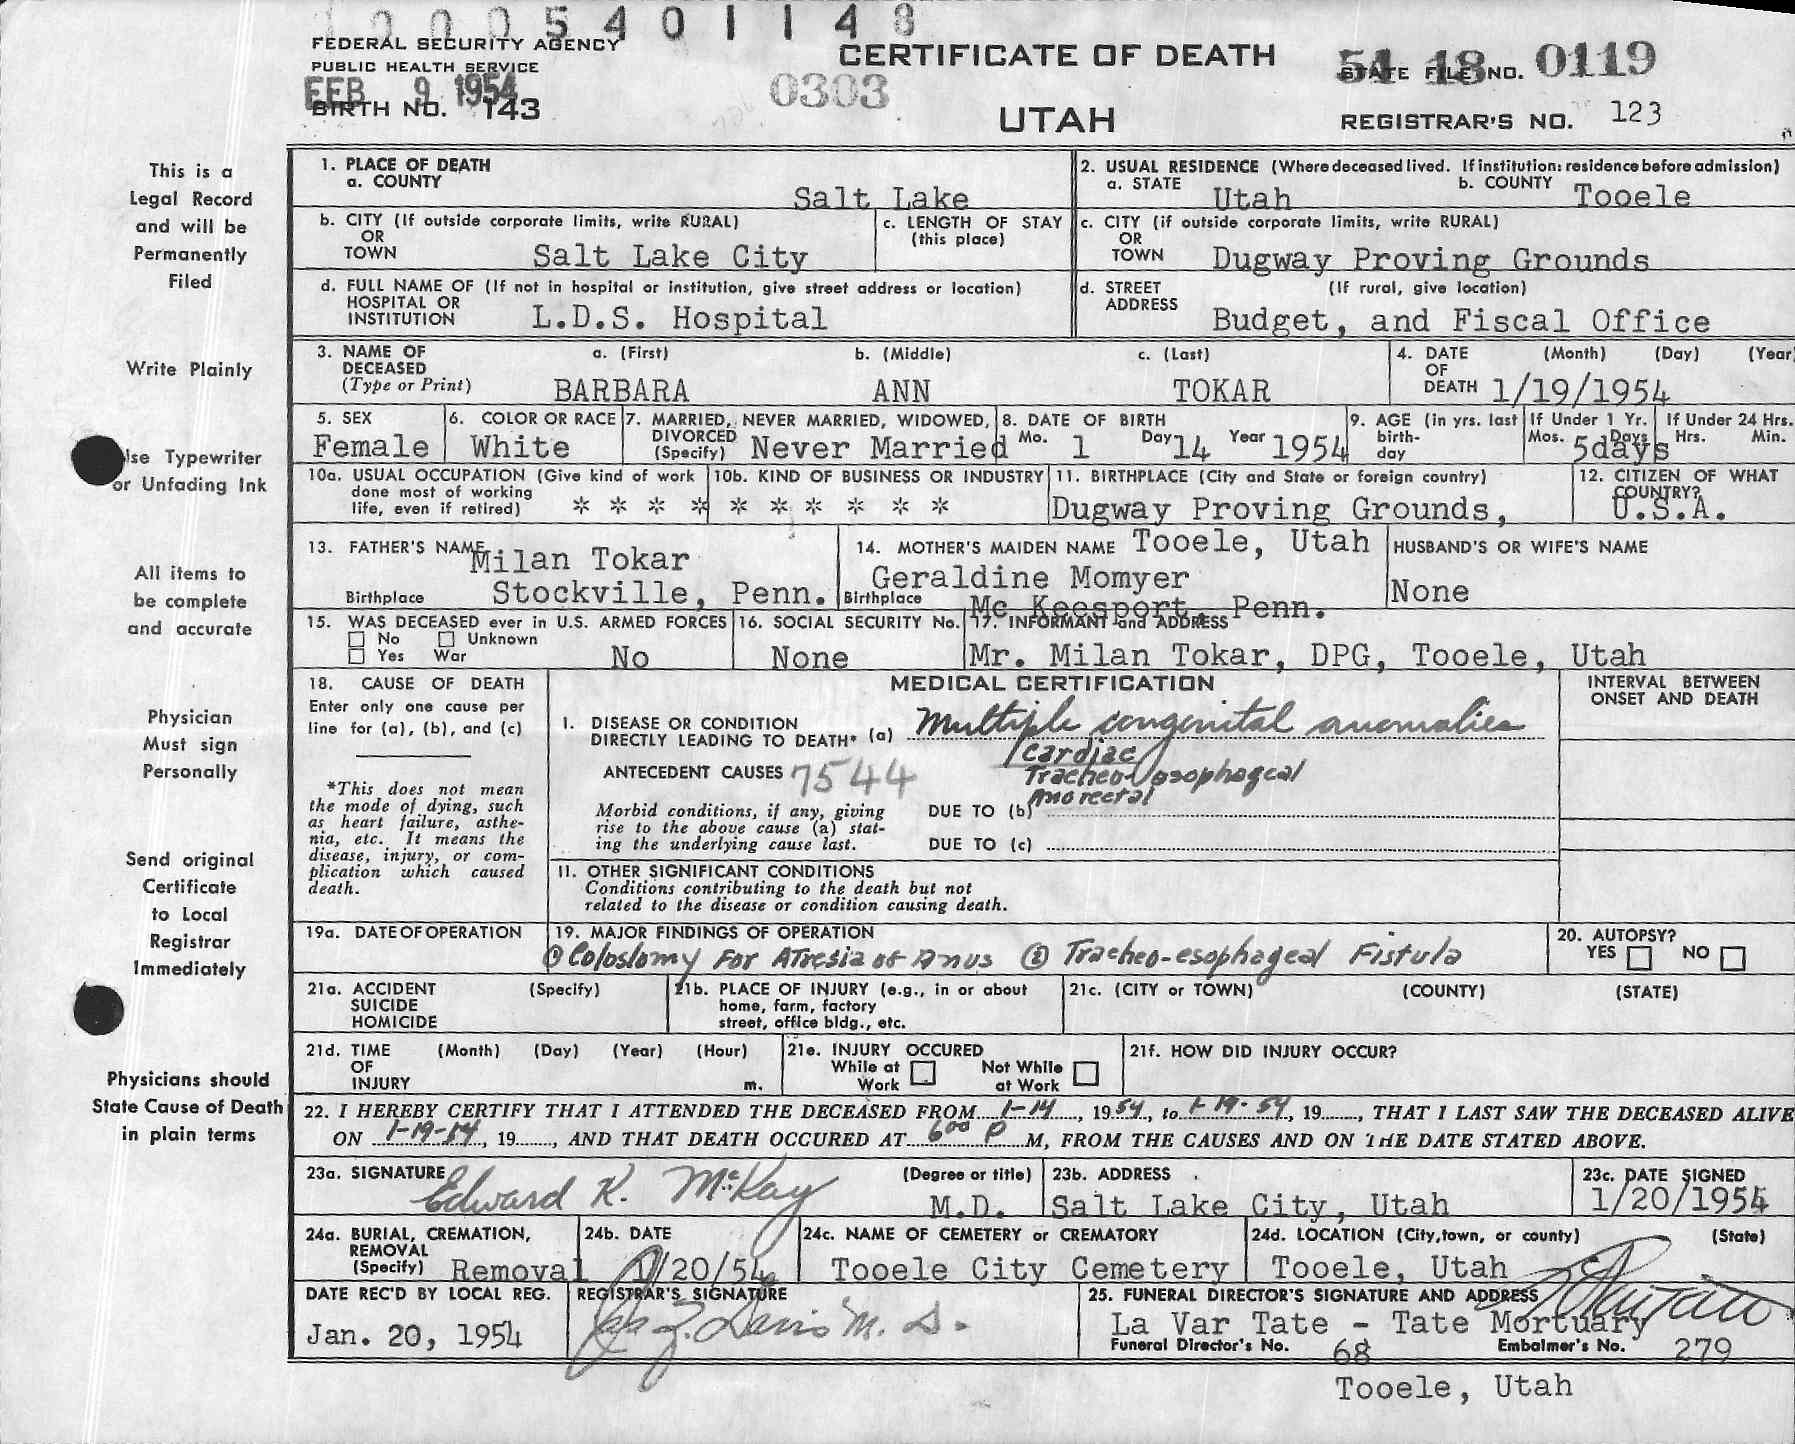 10005401148
FEDERAL SECURITY AGENCY
PUBLIC HEALTH SERVICE
FEB 9 1954
BIRTH NO. 143
0303
CERTIFICATE OF DEATH
UTAH
STATE FILE NO. 54 18 0119
REGISTRAR'S NO. 123
This is a
Legal Record
and will be
Permanently
Filed
Write Plainly
Use Typewriter
or Unfading Ink
All items to
be complete
and accurate
Physician
Must sign
Personally
Send original
Certificate
to Local
Registrar
Immediately
Physicians should
State Cause of Death
in plain terms
1. PLACE OF DEATH
a. COUNTY Salt Lake
b. CITY (If outside corporate limits, write RURAL)
OR
TOWN Salt Lake City
c. LENGTH OF STAY
(this place)
d. FULL NAME OF (If not in hospital or institution, give street address or location)
HOSPITAL OR
INSTITUTION L.D.S. Hospital
2. USUAL RESIDENCE (Where deceased lived. If institution: residence before admission)
a. STATE Utah b. COUNTY Tooele
c. CITY (if outside corporate limits, write RURAL)
OR
TOWN Dugway Proving Grounds
d. STREET (If rural, give location)
ADDRESS Budget, and Fiscal Office
3. NAME OF DECEASED (Type or Print)
a. (First) b. (Middle) c. (Last)
BARBARA ANN TOKAR
4. DATE OF DEATH (Month) (Day) (Year)
1/19/1954
5. SEX Female
6. COLOR OR RACE White
7. MARRIED, NEVER MARRIED, WIDOWED,
DIVORCED (Specify) Never Married
8. DATE OF BIRTH
Mo. 1 Day 14 Year 1954
9. AGE (in yrs. last birth-day
If Under 1 Yr. Mos. Days 5days
If Under 24 Hrs. Hrs. Min.
10a. USUAL OCCUPATION (Give kind of work
done most of working
life, even if retired) * * * *
10b. KIND OF BUSINESS OR INDUSTRY
* * * * * *
11. BIRTHPLACE (City and State or foreign country)
Dugway Proving Grounds,
Tooele, Utah
12. CITIZEN OF WHAT COUNTRY?
U.S.A.
13. FATHER'S NAME Milan Tokar
Birthplace Stockville, Penn.
14. MOTHER'S MAIDEN NAME
Geraldine Momyer
Birthplace Mc Keesport, Penn.
HUSBAND'S OR WIFE'S NAME
None
15. WAS DECEASED ever in U.S. ARMED FORCES
No Unknown
Yes War No
16. SOCIAL SECURITY No.
None
17. INFORMANT and ADDRESS
Mr. Milan Tokar, DPG, Tooele, Utah
18. CAUSE OF DEATH
Enter only one cause per
line for (a), (b), and (c)
*This does not mean
the mode of dying, such
as heart failure, asthe-
nia, etc. It means the
disease, injury, or com-
plication which caused
death.
MEDICAL CERTIFICATION
INTERVAL BETWEEN
ONSET AND DEATH
I. DISEASE OR CONDITION
DIRECTLY LEADING TO DEATH* (a) Multiple congenital anomalies
Cardiac
ANTECEDENT CAUSES 7544 Tracheo-esophageal
Anorectal
Morbid conditions, if any, giving
rise to the above cause (a) stat-
ing the underlying cause last.
DUE TO (b)
DUE TO (c)
II. OTHER SIGNIFICANT CONDITIONS
Conditions contributing to the death but not
related to the disease or condition causing death.
19a. DATE OF OPERATION
19. MAJOR FINDINGS OF OPERATION
① Colostomy For Atresia of Anus ② Tracheo-esophageal Fistula
20. AUTOPSY?
YES NO
21a. ACCIDENT (Specify)
SUICIDE
HOMICIDE
21b. PLACE OF INJURY (e.g., in or about
home, farm, factory
street, office bldg., etc.
21c. (CITY or TOWN) (COUNTY) (STATE)
21d. TIME (Month) (Day) (Year) (Hour)
OF
INJURY m.
21e. INJURY OCCURED
While at Work Not While at Work
21f. HOW DID INJURY OCCUR?
22. I HEREBY CERTIFY THAT I ATTENDED THE DECEASED FROM 1-14, 1954, to 1-19-54, 19......, THAT I LAST SAW THE DECEASED ALIVE
ON 1-19-54, 19......, AND THAT DEATH OCCURED AT 6 00 P M, FROM THE CAUSES AND ON THE DATE STATED ABOVE.
23a. SIGNATURE (Degree or title)
Edward K. McKay M.D.
23b. ADDRESS
Salt Lake City, Utah
23c. DATE SIGNED
1/20/1954
24a. BURIAL, CREMATION,
REMOVAL
(Specify) Removal
24b. DATE
1/20/54
24c. NAME OF CEMETERY or CREMATORY
Tooele City Cemetery
24d. LOCATION (City, town, or county) (State)
Tooele, Utah
DATE REC'D BY LOCAL REG.
Jan. 20, 1954
REGISTRAR'S SIGNATURE
Davis M. D.
25. FUNERAL DIRECTOR'S SIGNATURE AND ADDRESS
La Var Tate - Tate Mortuary
Funeral Director's No. 68 Embalmer's No. 279
Tooele, Utah